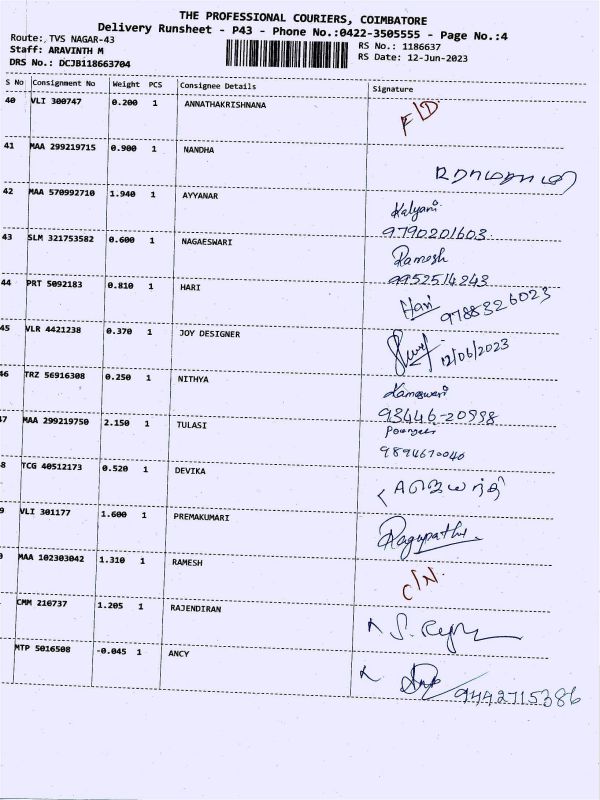 THE PROFESSIONAL COURIERS, COIMBATORE
Delivery Runsheet - P43 - Phone No.:0422-3505555 - Page No.:4
Route: TVS NAGAR-43
Staff: ARAVINTH M RS No.: 1186637
DRS No.: DCJB118663704 RS Date: 12-Jun-2023
S No Consignment No Weight PCS Consignee Details Signature
40 VLI 300747 0.200 1 ANNATHAKRISHNANA F/D
41 MAA 299219715 0.900 1 NANDHA
42 MAA 570992710 1.940 1 AYYANAR Kalyani
9790201603
43 SLM 321753582 0.600 1 NAGAESWARI Ramesh
9952514243
44 PRT 5092183 0.810 1 HARI Hari 9788326023
45 VLR 4421238 0.370 1 JOY DESIGNER 12/06/2023
46 TRZ 56916308 0.250 1 NITHYA Kameswari
93446-20998
47 MAA 299219750 2.150 1 TULASI
9894670040
8 TCG 40512173 0.520 1 DEVIKA
9 VLI 301177 1.600 1 PREMAKUMARI Ragupathi
MAA 102303042 1.310 1 RAMESH C/N
CMM 210737 1.205 1 RAJENDIRAN
MTP 5016508 -0.045 1 ANCY 9442715386